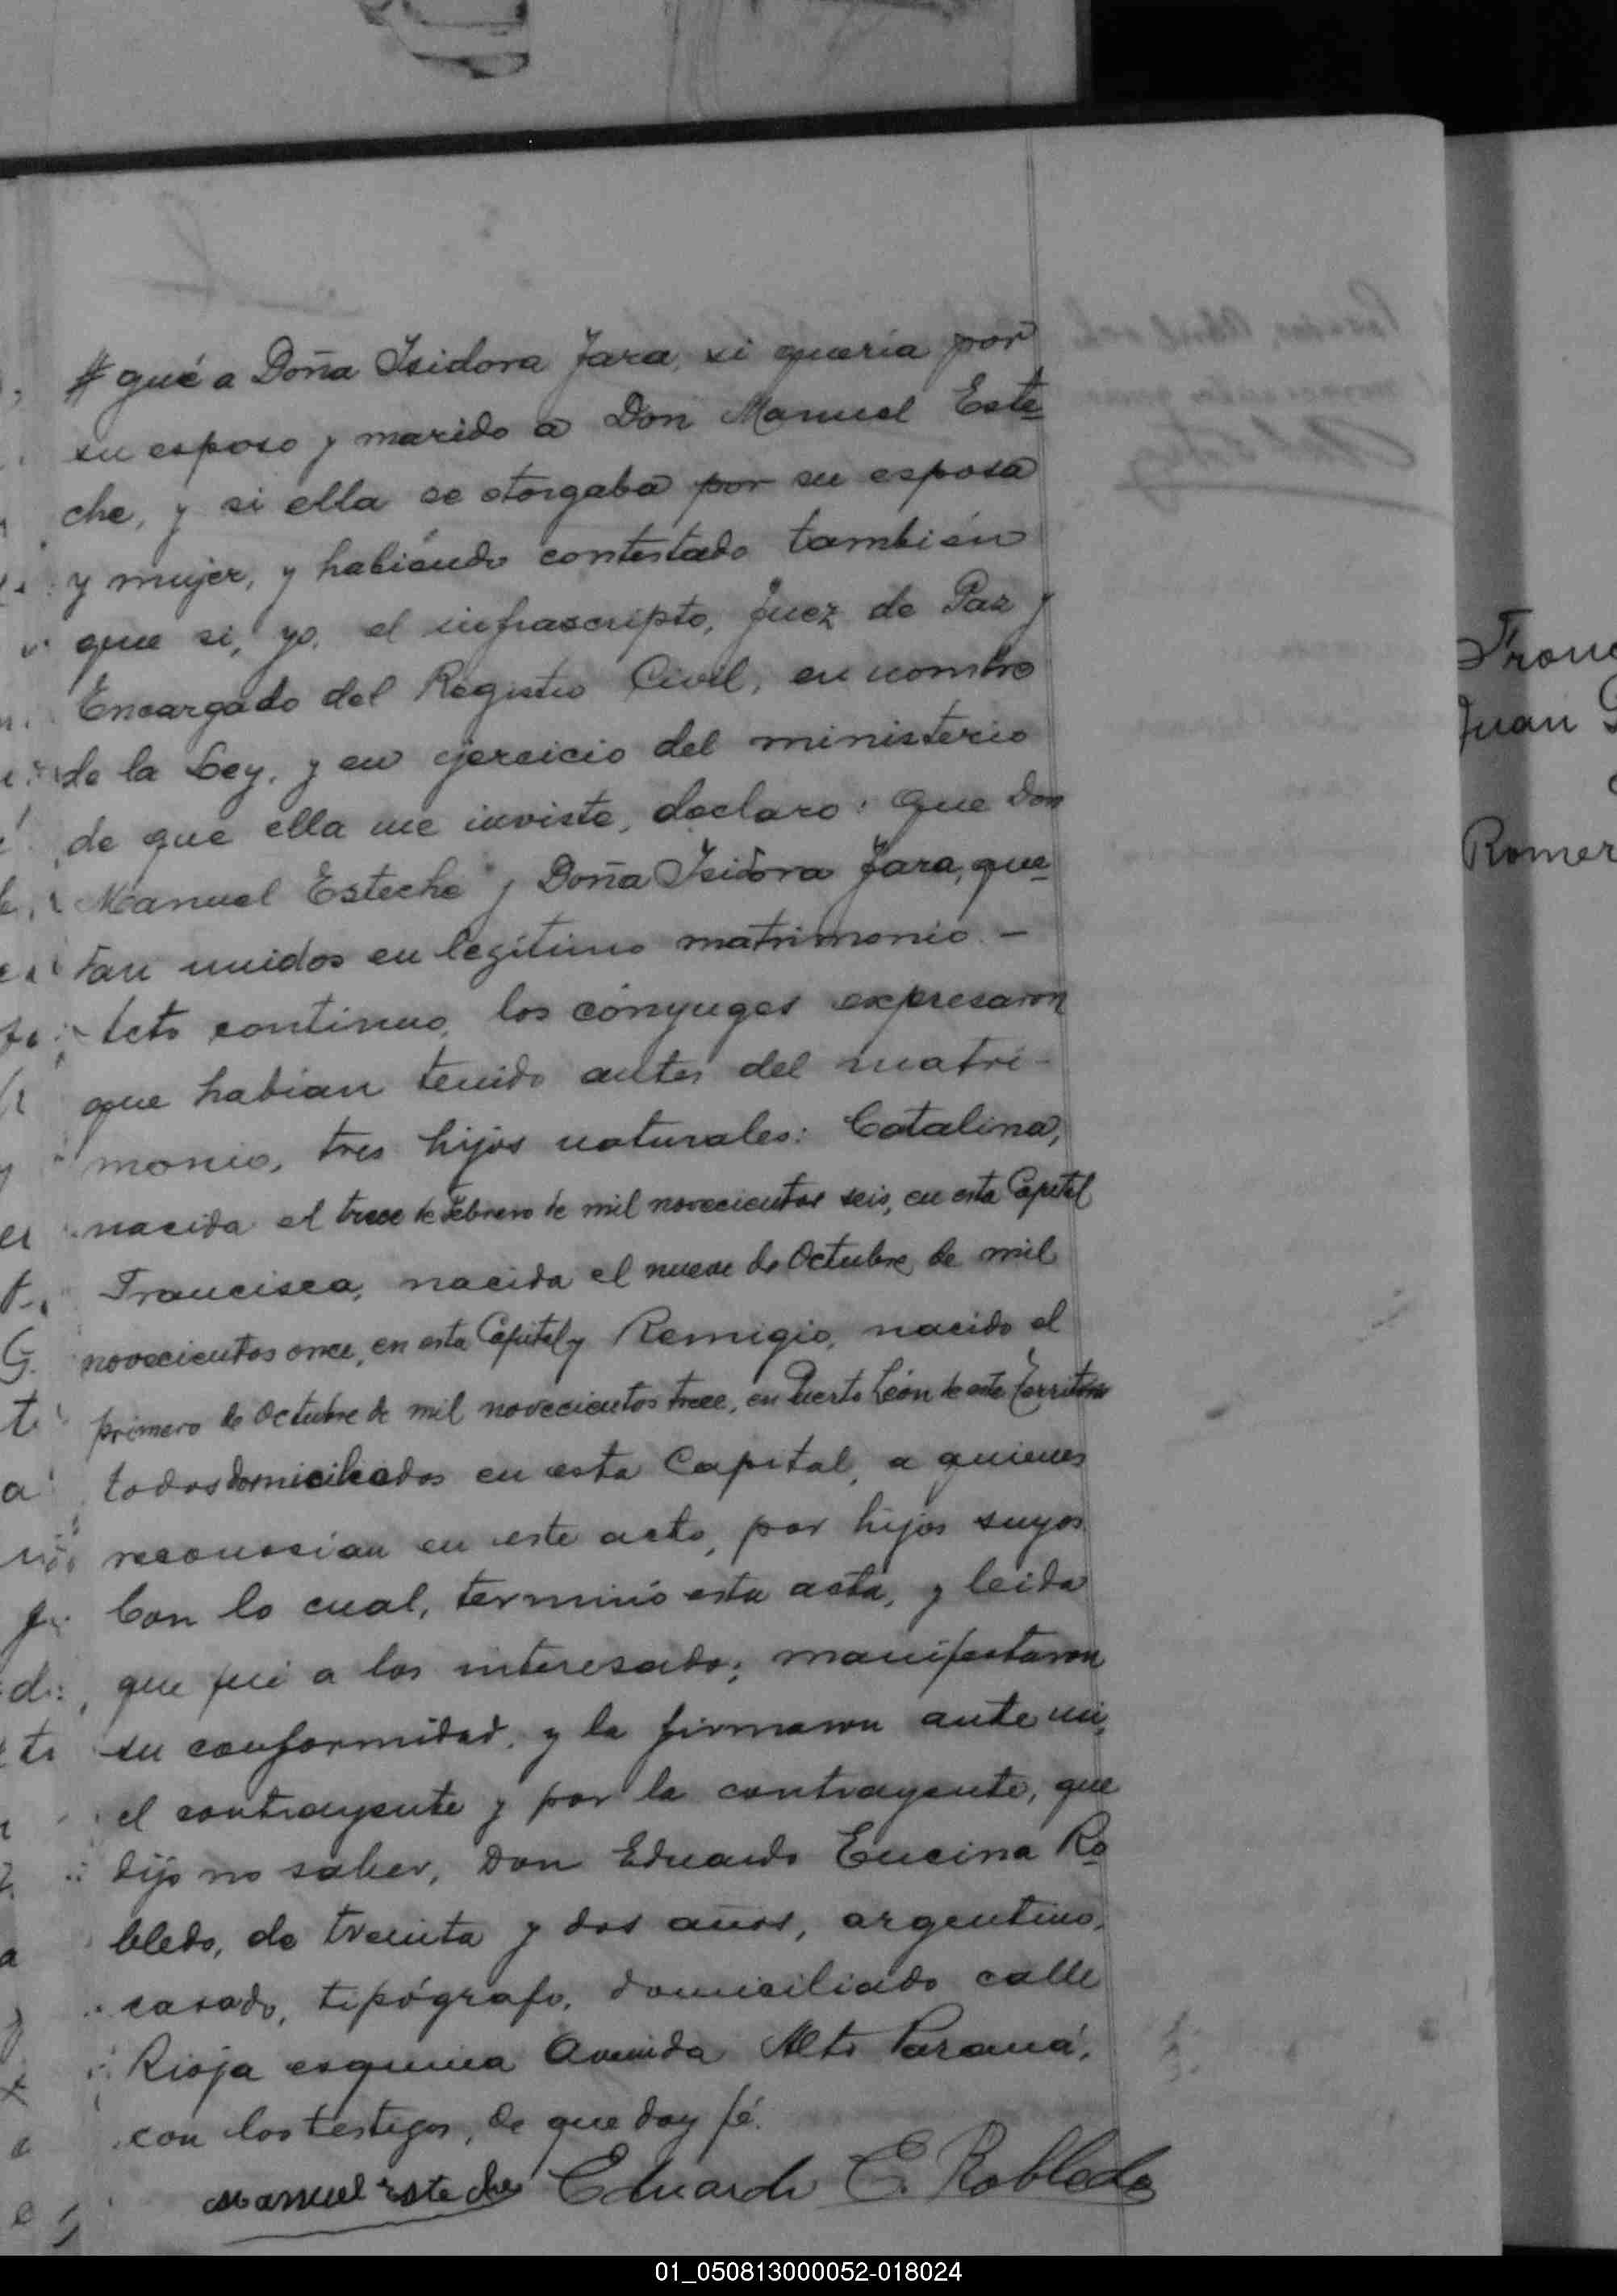 # gué a Doña Isidora Jara, si quería por
su esposo y marido a Don Manuel Este=
che, y si ella se otorgaba por su esposa
y mujer, y habiéndo contestado también
que si, yo, el infrascripto, Juez de Paz y
Encargado del Registro Civil, en nombre
de la Ley, y en ejercicio del ministerio
de que ella me inviste, declaro: Que Don
Manuel Esteche y Doña Isidora Jara, que=
dan unidos en legítimo matrimonio. —
Acto continuo, los cónyuges expresaron
que habían tenido antes del matri-
monio, tres hijos naturales: Catalina,
nacida el trece de Febrero de mil novecientos seis, en esta Capital
Francisca, nacida el nueve de Octubre de mil
novecientos once, en esta Capital y Remigio, nacido el
primero de Octubre de mil novecientos trece, en Puerto León de este Territorio
todos domiciliados en esta Capital, a quienes
reconocían en este acto, por hijos suyos.
Con lo cual, terminó esta acta, y leida
que fué a los interesados, manifestaron
su conformidad, y la firmaron ante mi,
el contrayente y por la contrayente, que
dijo no saber, Don Eduardo Encina Ro=
bledo, de treinta y dos años, argentino,
casado, tipógrafo, domiciliado calle
Rioja esquina Avenida Alto Paraná,
con los testigos, de que doy fé.
Manuel Esteche Eduardo E. Robledo
Juan
Romer
01_050813000052-018024